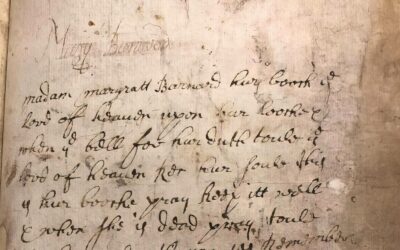 Mary Barnard
madam margratt Barnard hur booth is
lord of heaven upon hur loothe
when ye bell for hur duth toule ye
lord of heaven her hur soule this
is hur boothe pray keep itt well
when she is dead toule
Remember